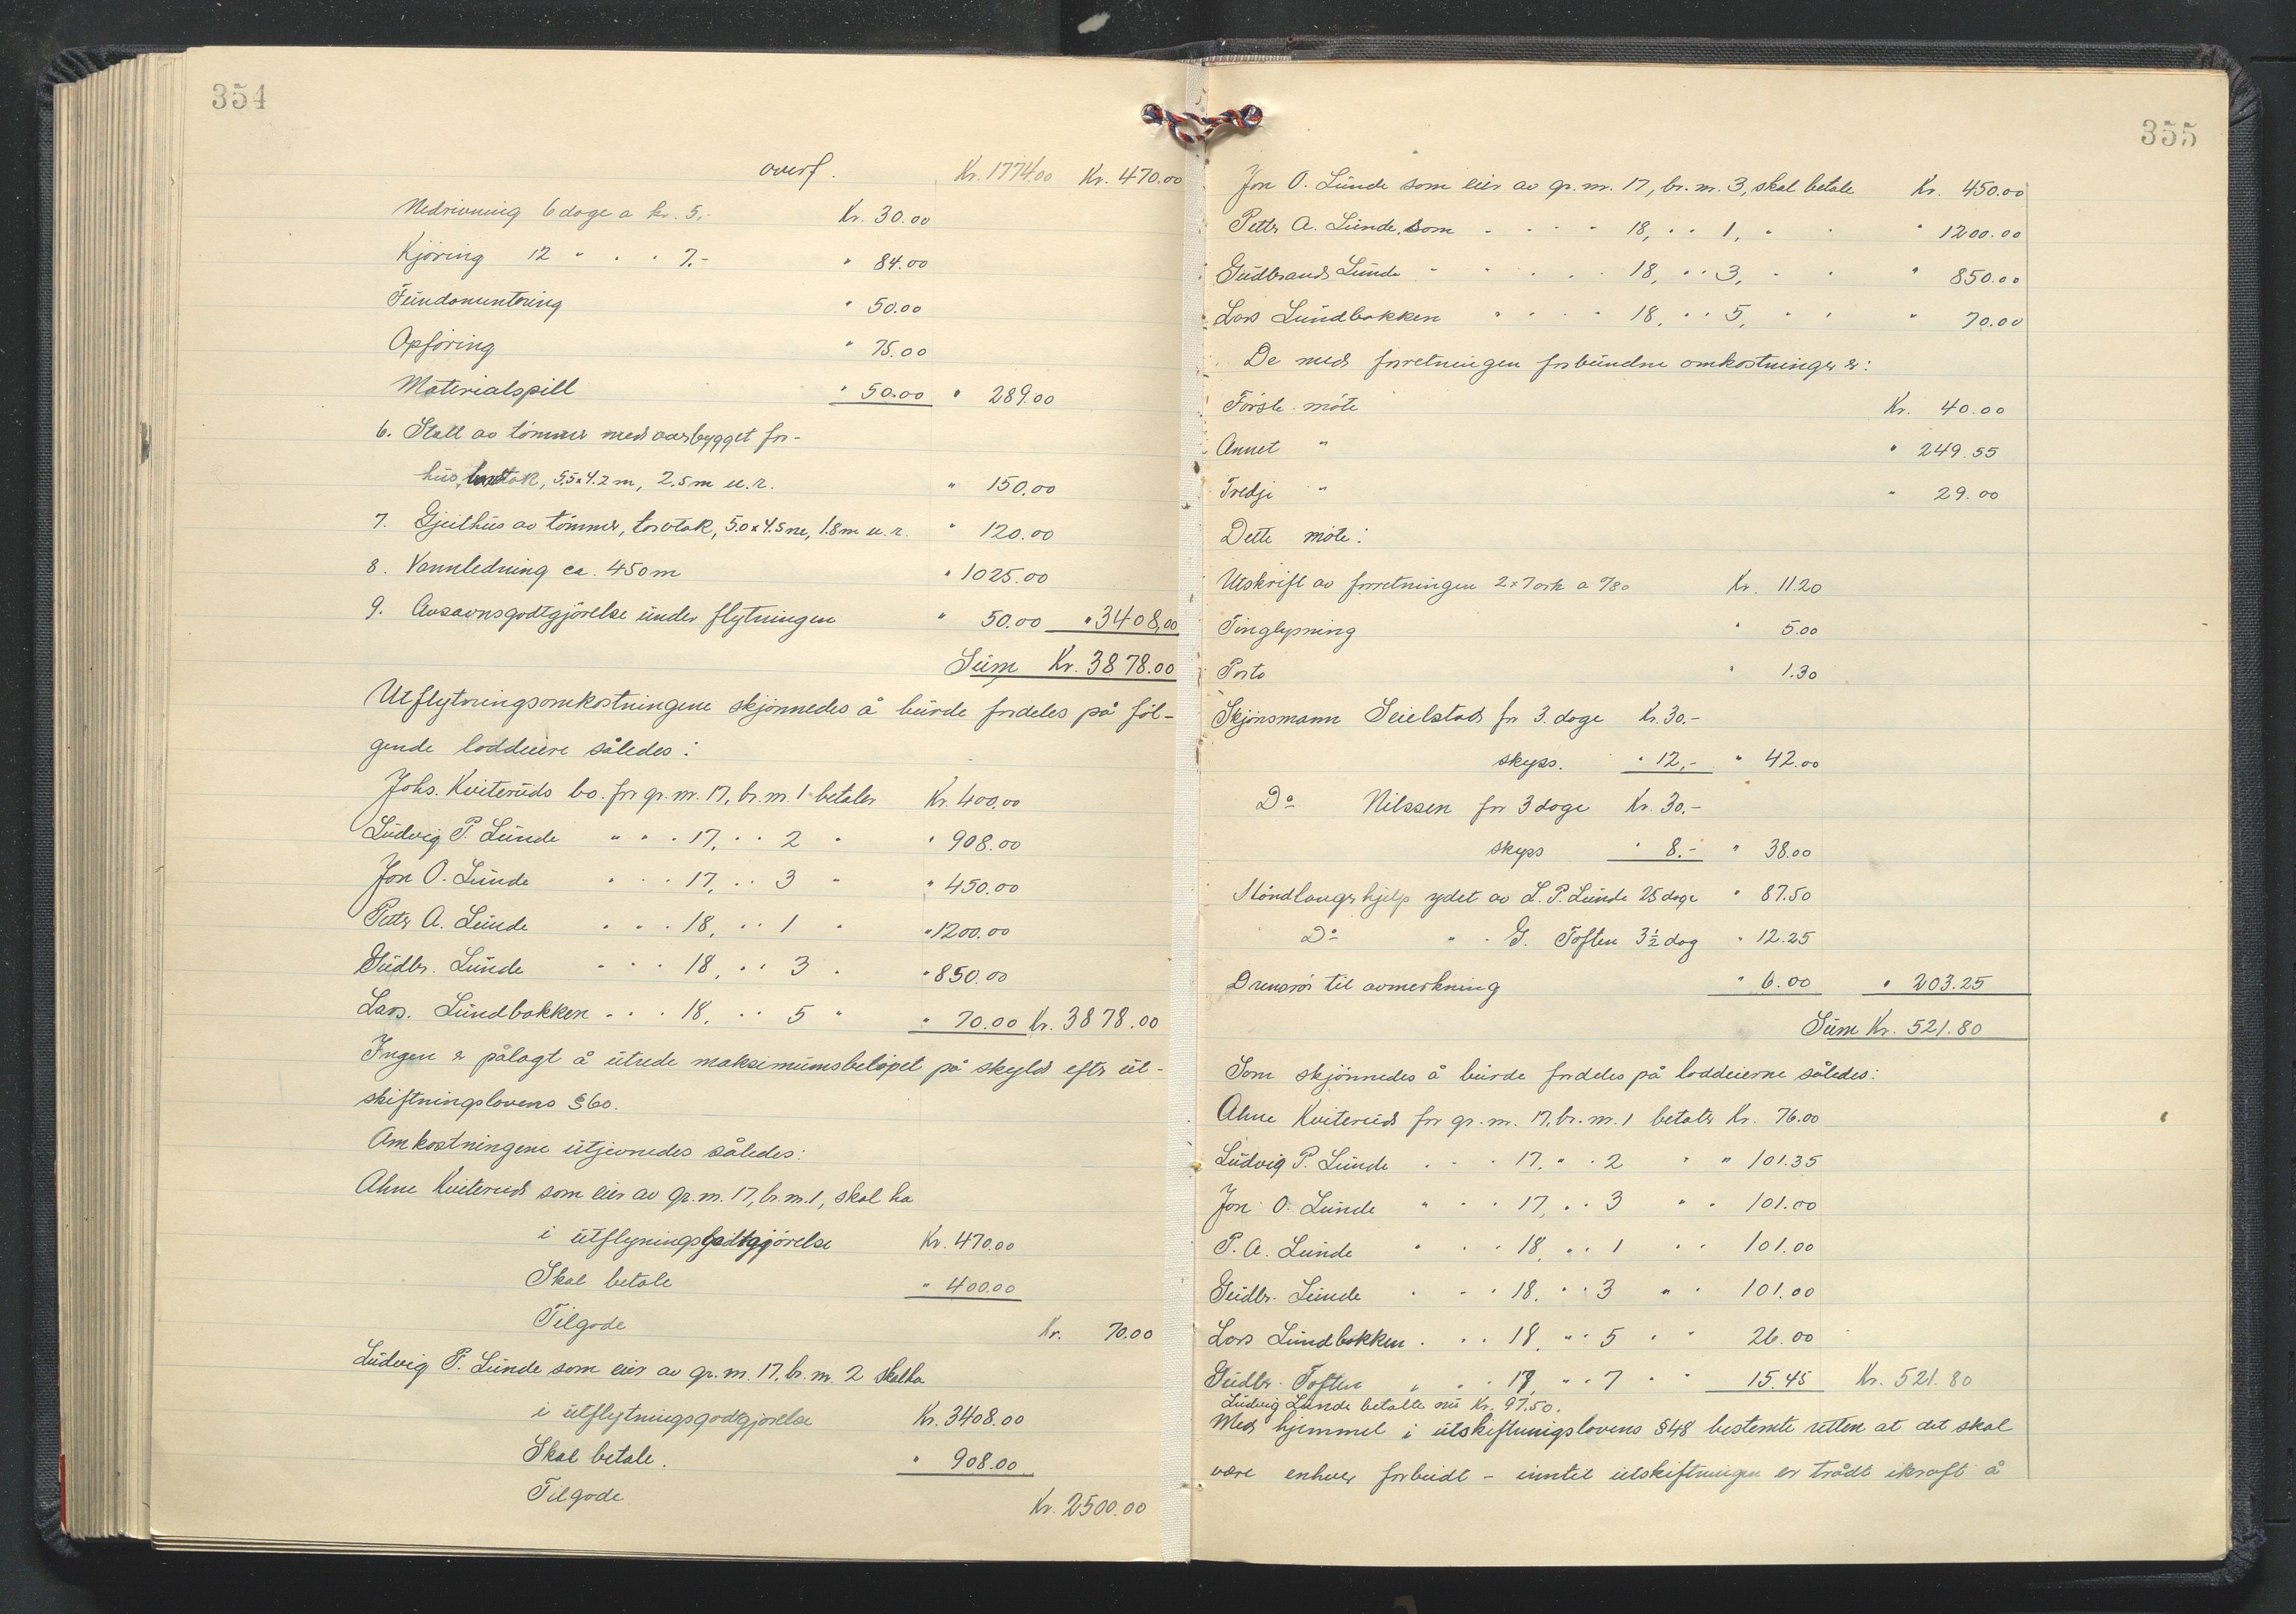 354
overf. Kr. 1774.00 Kr. 470.00
Nedrivning 6 dage a kr. 5,- Kr. 30.00
Kjöring 12 " " " 7.- " 84.00
Fundamentering " 50.00
Opföring " 75.00
Materialspill " 50.00 " 289.00
6. Stall av tömmer med overbygget for-
hus, torvtak, 5,5x4.2m, 2.5m u.r. " 150.00
7. Gjeithus av tömmer, torvtak, 5.0x4.5m, 1.8m u.r. " 120.00
8. Vannledning ca. 450m " 1025.00
9. Avsavnsgodtgjörelse under flytningen " 50.00 " 3408,00
Sum Kr. 3878.00
Utflytningsomkostningene skjönnedes å burde fordeles på föl-
gende loddeiere således:
Johs. Kviteruds bo. for gr. nr. 17, br. nr. 1 betaler Kr. 400,00
Ludvig P. Lunde " " " 17, " " 2 " " 908.00
Jon O. Lunde " " " 17, " " 3 " " 450.00
Petter A. Lunde " " " 18, " " 1 " " 1200.00
Gudbr. Lunde " " " 18, " " 3 " " 850.00
Lars. Lundbakken " " " 18, " " 5 " " 70.00 Kr. 3878.00
Ingen er pålagt å utrede maksimumsbelöpet på skyld efter ut-
skiftningslovens §60.
Omkostningene utjevnedes således:
Ahne Kviterud som eier av gr. nr. 17, br. nr. 1, skal ha
i utflyningsgodtgjörelse Kr. 470.00
Skal betale " 400.00
Tilgode Kr. 70.00
Ludvig P. Lunde som eier av gr. nr. 17, br. nr. 2 skal ha
i utflytningsgodgjörelse Kr. 3408.00
Skal betale. " 908.00
Tilgode Kr. 2500.00
355
Jon O. Lunde som eier av gr. nr. 17, br. nr. 3, skal betale Kr. 450.00
Petter A. Lunde, som " " " " 18, " " 1, " " " 1200.00
Gudbrand Lunde " " " " " 18, " " 3, " " " 850.00
Lars Lundbakken " " " " 18, " " 5, " " " 70.00
De med forretningen forbundne omkostninger er:
Förste möte Kr. 40.00
Annet " " 249.55
Tredje " " 29.00
Dette möte:
Utskrift av forretningen 2x7 ark a -/80 Kr. 11.20
Tinglysning " 5.00
Porto " 1.30
Skjönsmann Seielstad for 3 dage Kr. 30.-
skyss. " 12,- " 42.00
Do Nilssen for 3 dage Kr. 30.-
skyss " 8.- " 38.00
Håndlangerhjelp ydet av L. P. Lunde 25 dage " 87.50
Do " " G. Toften 3½ dag " 12.25
Drensrör til avmerkning " 6.00 " 203.25
Sum Kr. 521.80
Som skjönnedes å burde fordeles på loddeierne således:
Ahne Kviterud for gr. nr. 17, br. nr. 1 betaler Kr. 76.00
Ludvig P. Lunde " " " 17, " " 2 " " 101.35
Jon O. Lunde " " " 17, " " 3 " " 101.00
P. A. Lunde " " " 18, " " 1 " " 101.00
Gudbr. Lunde " " " 18, " " 3 " " 101.00
Lars Lundbakken " " " 18, " " 5 " " 26.00
Gudbr. Toften " " " 18, " " 7 " " 15.45 Kr. 521.80
Ludvig Lunde betalte nu Kr. 97,50.
Med hjemmel i utskiftningslovens §48 bestemte retten at det skal
være enhver forbudt - inntil utskiftningen er trådt ikraft å